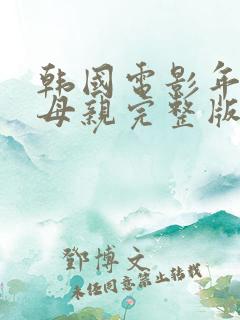 韩國电影年
母親完整版
鄧博文
未经同意禁止转载